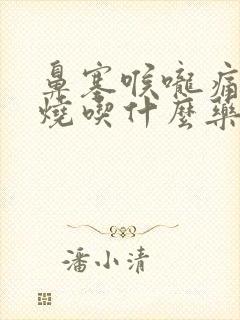 鼻塞喉嚨痛
燒喫什麼藥
潘小清